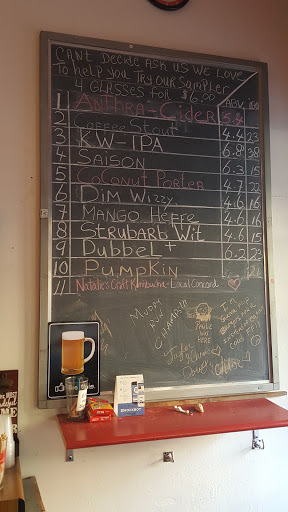 CAN'T DECIDE ASK US WE LOVE
TO help you TRY OUR SAMPLER
4 GLASSES FOR $6.00
ABV. IBU
1 ANTHRA-CIDER 5.4
2 COFFEE STOUT 4.4 23
3 KW-IPA 6.8 38
4 SAISON 6.3 15
5 COCONUT PORTER 4.7 22
6 DIM WIZZY 4.6 16
7 MANGO HEFFE 4.6 16
8 STRUBARB WIT 4.6 15
9 DUBBEL+ 6.2 23
10 PUMPKIN
11 Natalie's Craft Kombucha - Local Concord
MUDDY
RUN
CHAMPS!!!
PAULE
WAS
HERE